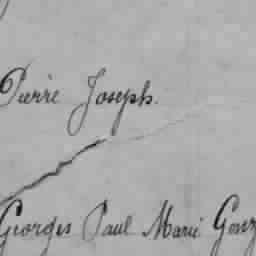 Pierre Joseph.
Georges Paul Marie